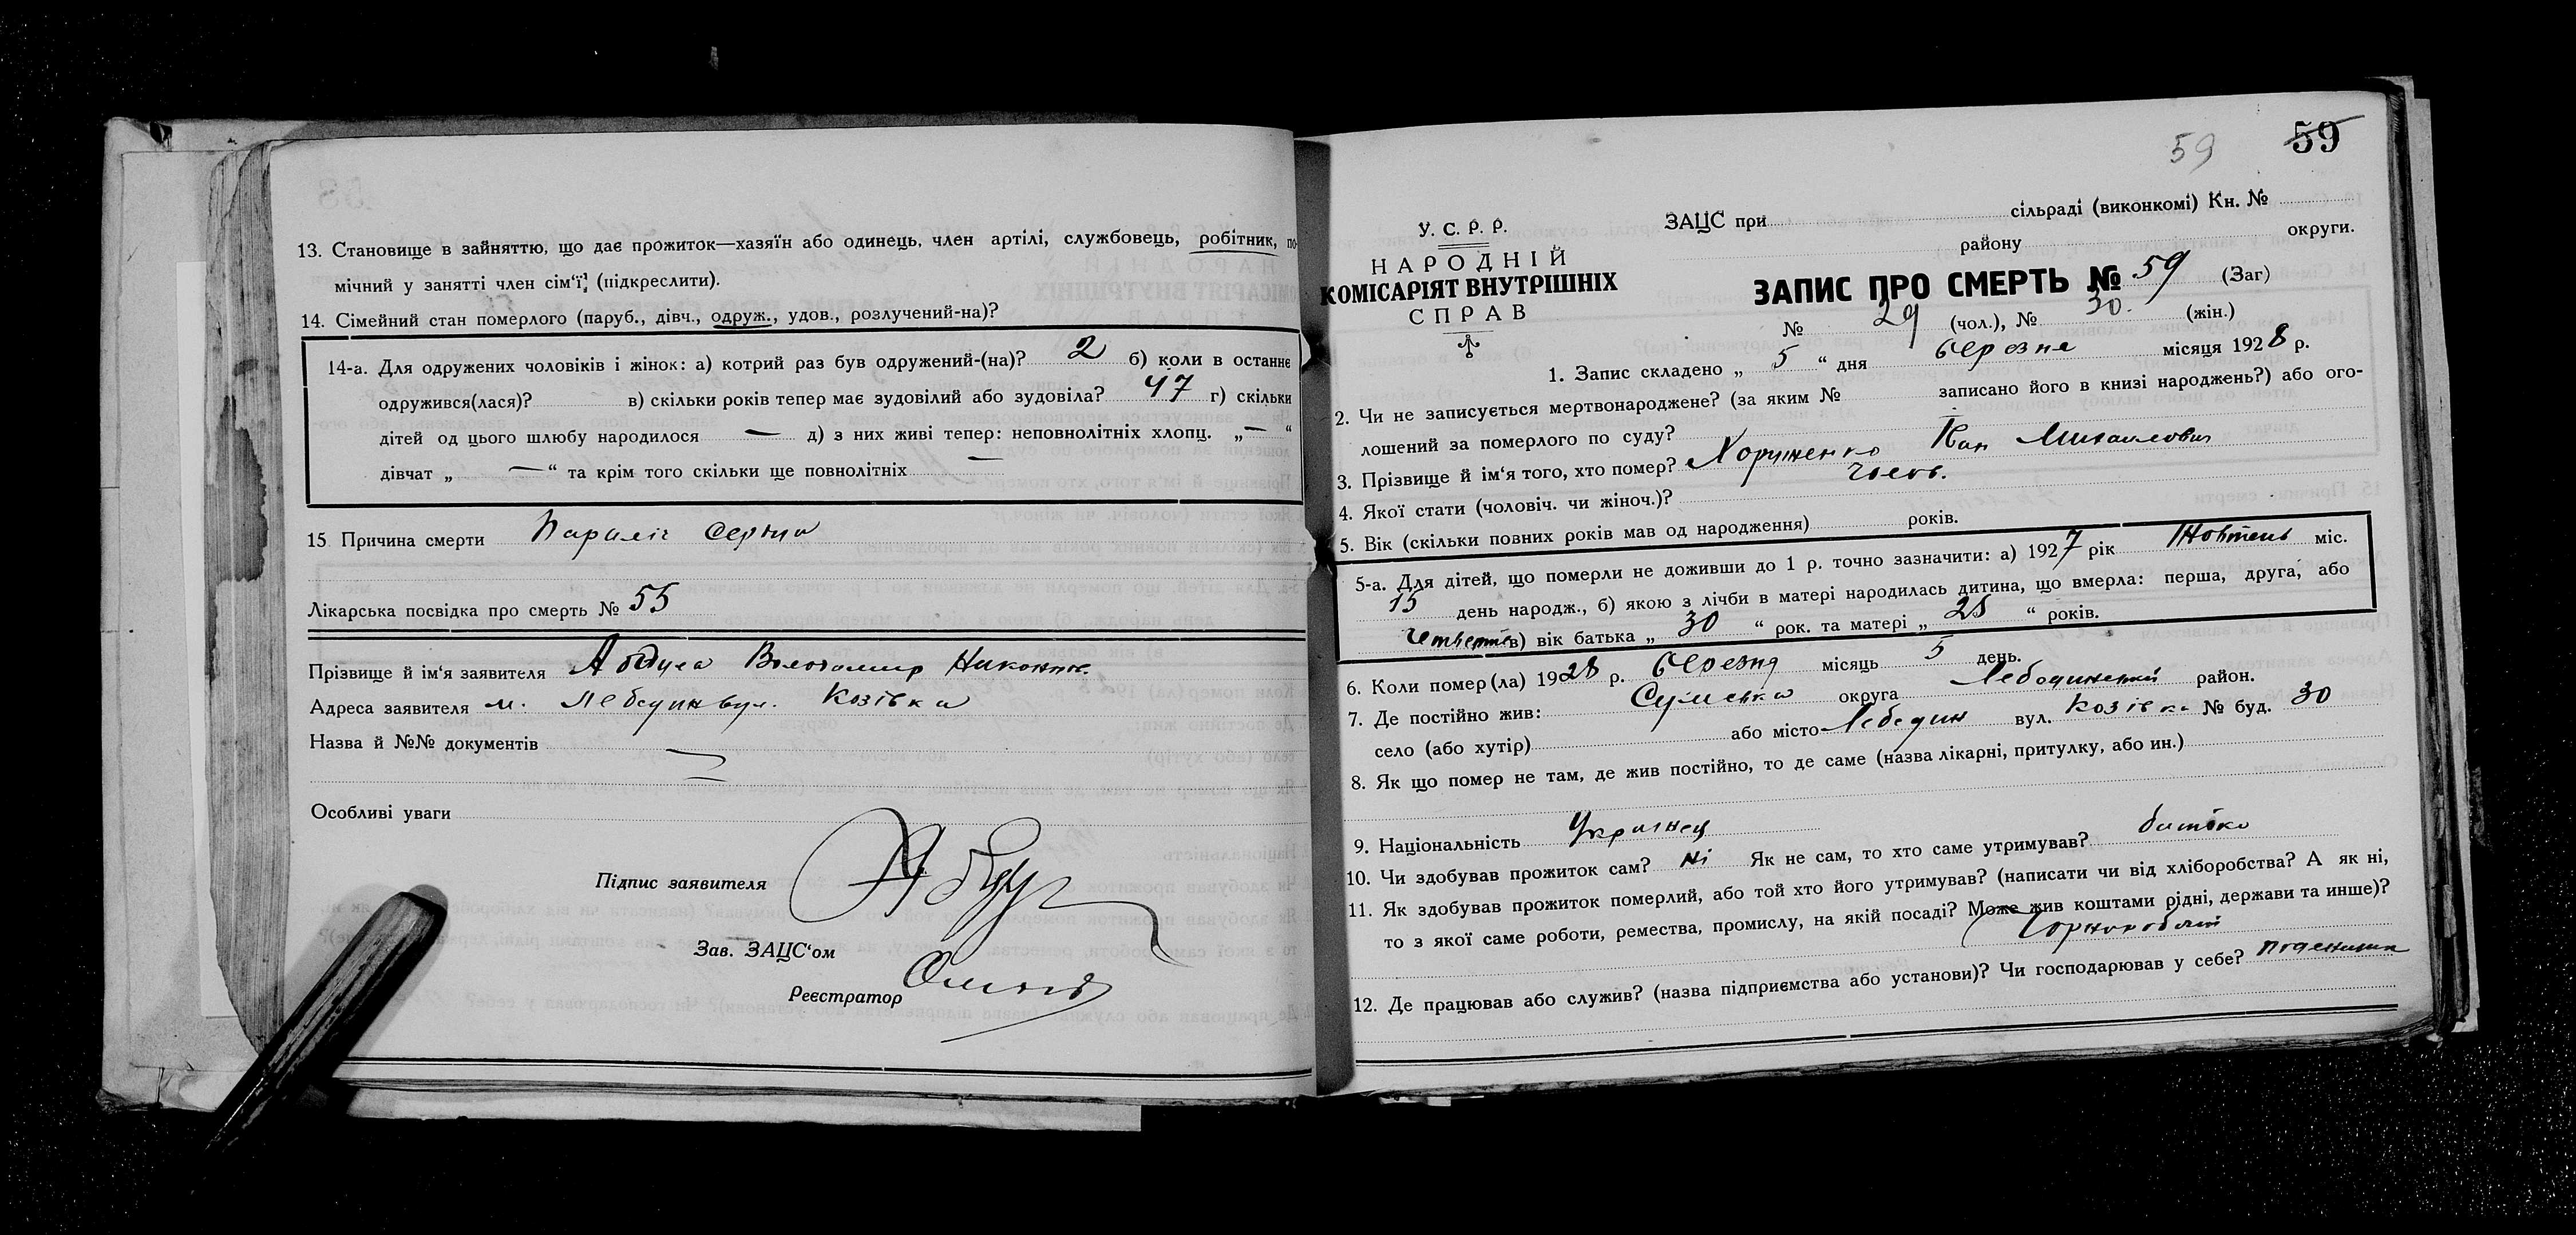 13. Становище в зайняттю, що дає прожиток—хазяїн або одинець, член артілі, службовець, робітник, по-
мічний у занятті член сім'ї, (підкреслити).
14. Сімейний стан померлого (паруб., дівч., одруж., удов., розлучений-на)?
14-а. Для одружених чоловіків і жінок: а) котрий раз був одружений-(на)? 2 б) коли в останнє
одружився(лася)? в) скільки років тепер має зудовілий або зудовіла? 47 г) скільки
дітей од цього шлюбу народилося — д) з них живі тепер: неповнолітніх хлопц. „—“
дівчат „—“ та крім того скільки ще повнолітніх —
15 Причина смерти Параліч серця
Лікарська посвідка про смерть № 55
Прізвище й ім'я заявителя Володимир
Адреса заявителя м. Лебедин вул. Козівка
Назва й №№ документів —
Особливі уваги
Підпис заявителя
Зав. ЗАЦС'ом
Реєстратор
59 59
У. С. Р. Р.
НАРОДНІЙ
КОМІСАРІЯТ ВНУТРІШНІХ
СПРАВ
ЗАЦС при сільраді (виконкомі) Кн. №
району округи.
ЗАПИС ПРО СМЕРТЬ № 59 (Заг)
№ 29 (чол.), № 30. (жін.)
1. Запис складено „ 5 “ дня березня місяця 1928 р.
2. Чи не записується мертвонароджене? (за яким № записано його в книзі народжень?) або ого-
лошений за померлого по суду?
3. Прізвище й ім'я того, хто помер? Хоруженко Іван Михайлович
4. Якої стати (чоловіч. чи жіноч.)? чолов.
5. Вік (скільки повних років мав од народження) років.
5-а. Для дітей, що померли не доживши до 1 р. точно зазначити: а) 1927 рік Жовтень міс.
15 день народж., б) якою з лічби в матері народилась дитина, що вмерла: перша, друга, або
четверте в) вік батька „ 30 “ рок. та матері „ 28 “ років.
6. Коли помер(ла) 1928 р. березня місяць 5 день.
7. Де постійно жив: Сумська округа Лебединський район.
село (або хутір) або місто Лебедин вул. Козівка № буд. 30
8. Як що помер не там, де жив постійно, то де саме (назва лікарні, притулку, або ин.)
9. Національність Українец
10. Чи здобував прожиток сам? ні Як не сам, то хто саме утримував? батько
11. Як здобував прожиток померлий, або той хто його утримував? (написати чи від хліборобства? А як ні,
то з якої саме роботи, ремества, промислу, на якій посаді? Може жив коштами рідні, держави та инше)?
Чорноробочий
12. Де працював або служив? (назва підприємства або установи)? Чи господарював у себе? поденщик